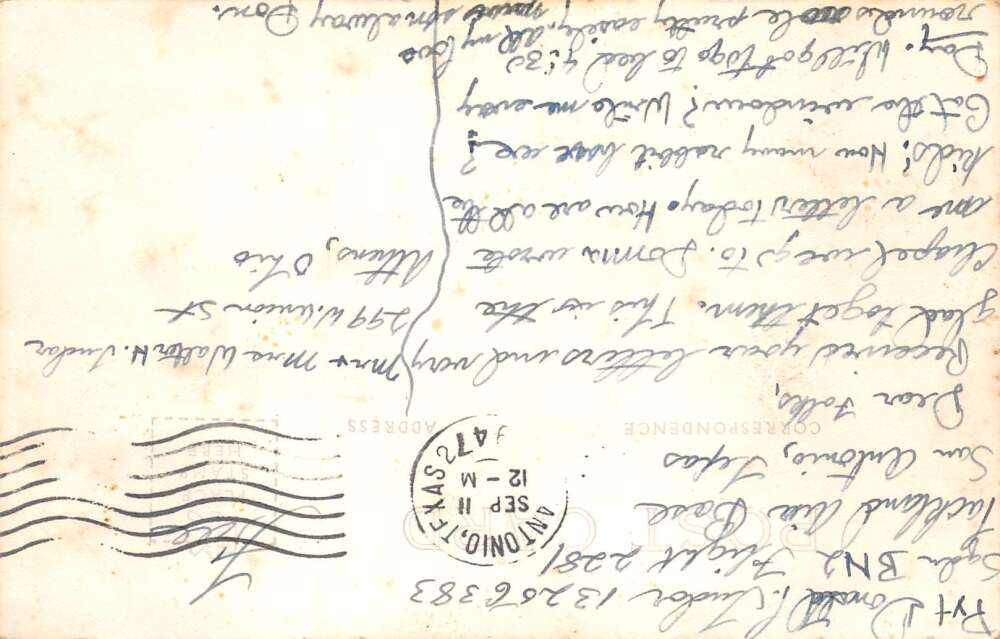 Pvt Donald P. Tudor 13256383
Sqdn BN2 Flight 2281
Lackland Air Base
San Antonio, Texas
POST CARD
Free
PLACE
STAMP
HERE
ANTONIO, TEXAS
SEP 11
12-M
47
CORRESPONDENCE
ADDRESS
Dear Folks,
Received your letters and very
glad to get them. This is the
Chapel we go to. Donna wrote
me a letters today. How are all the
kids? How many rabbit have we?
Got the window? Write me every
Day. Well got to go to bed 9:30
rounds role pretty easily. All my love
your son alway Don.
Mr + Mrs Walter H. Tudor
299 W. Union St
Athens, Ohio